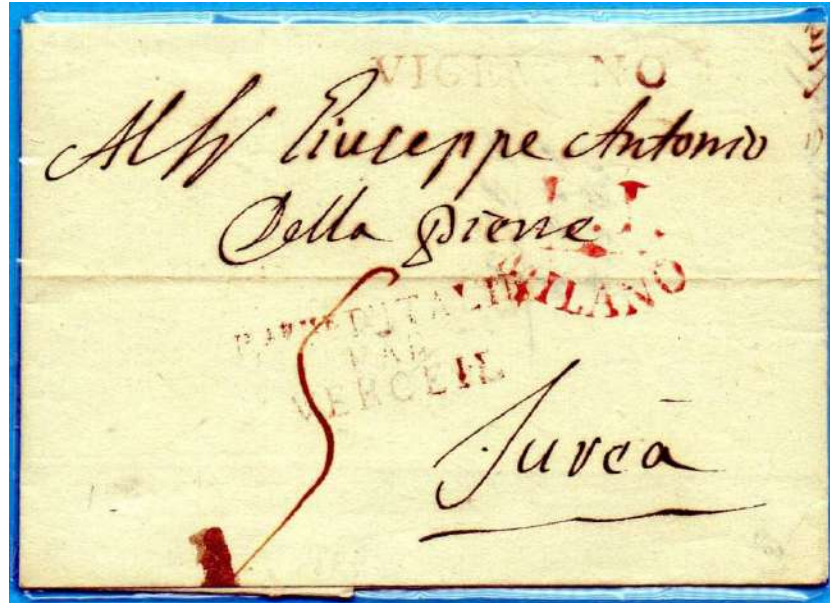 VIGE NO
Al Sr Giuseppe Antonio
Della Pierre
L.I.
MILANO
D'ITALIE
PAR
VERCEIL
5
Jurea